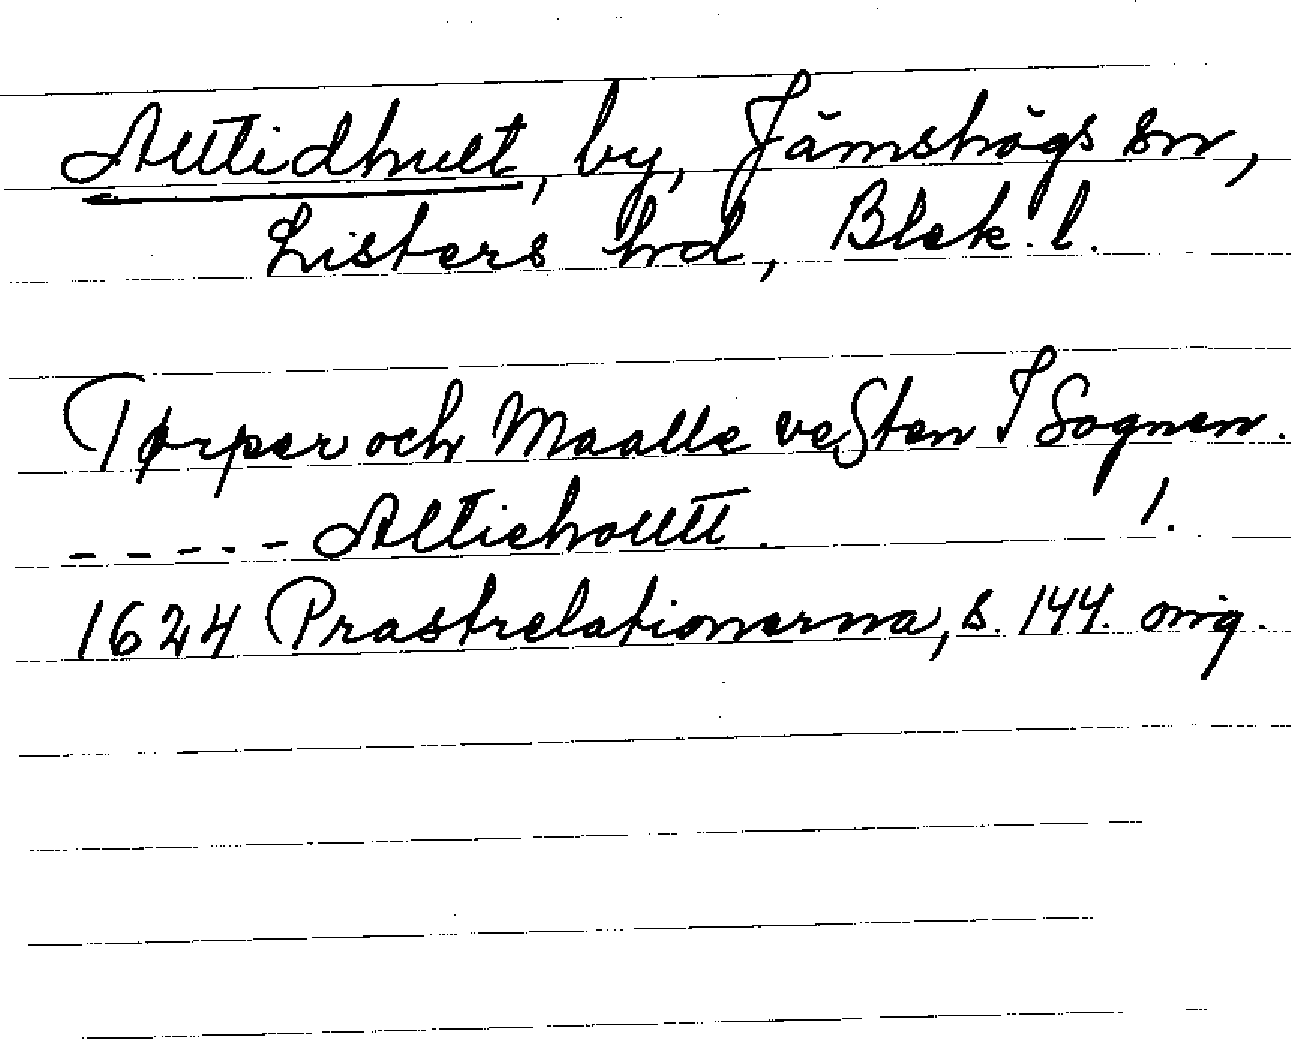 Alltidhult, by, Jämshögs sn,
Listers hd, Blek. l.
Tørper och Maalle vesten I Sognen.
----- Alltiehoultt. 1.
1624 Prastrelationerna, s. 144. orig.